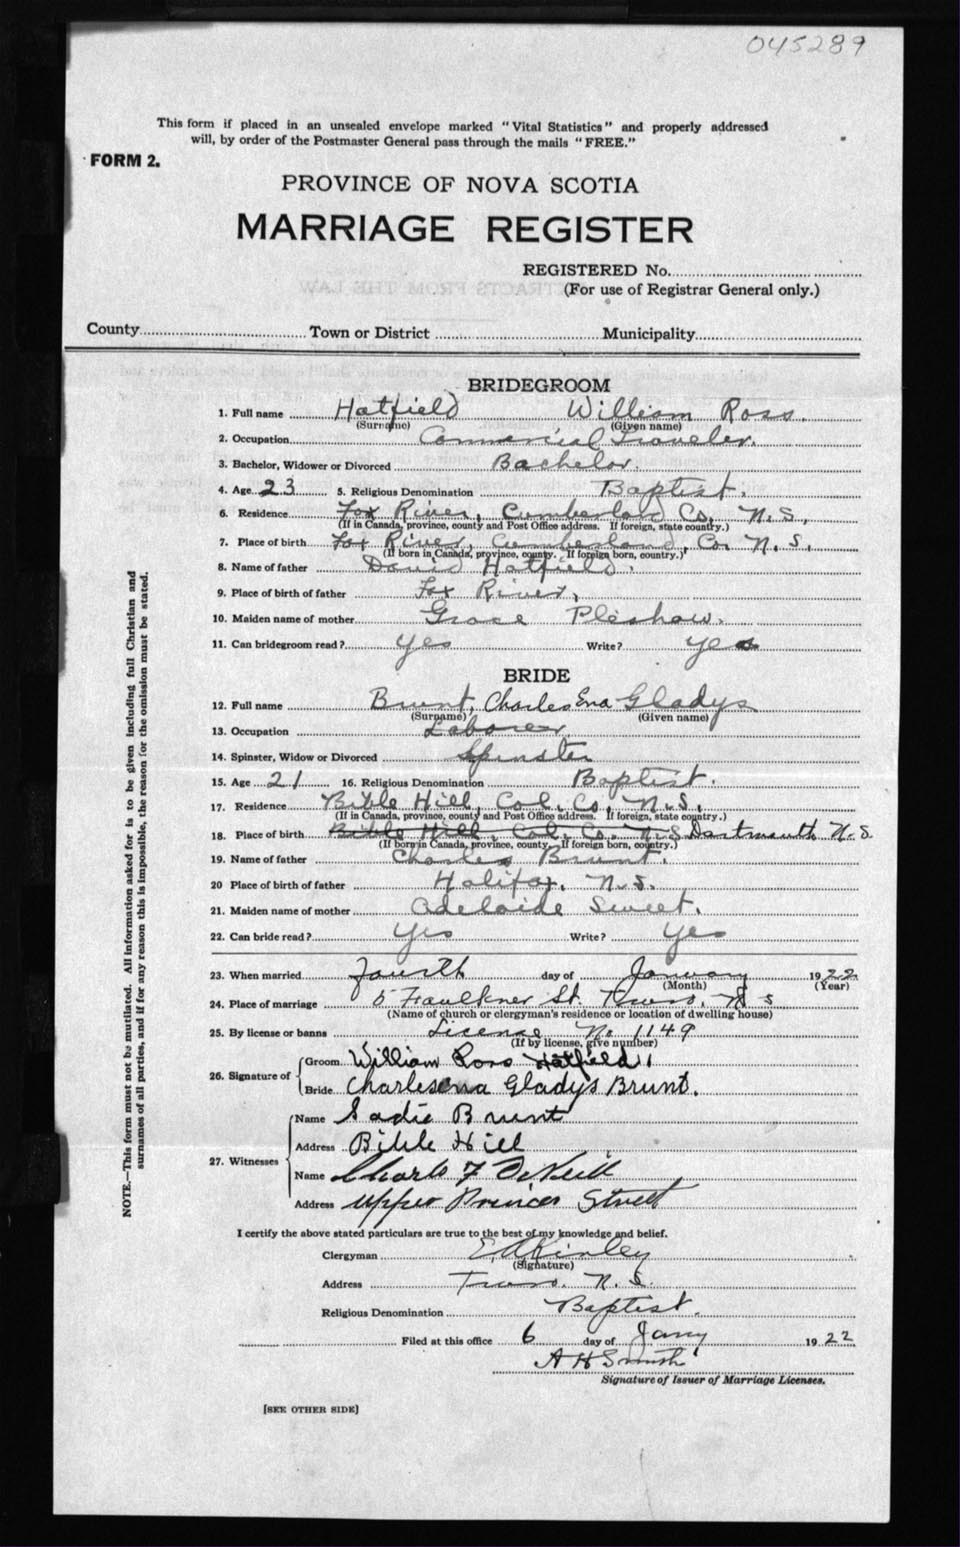 045289
This form if placed in an unsealed envelope marked "Vital Statistics" and properly addressed
will, by order of the Postmaster General pass through the mails "FREE."
FORM 2.
PROVINCE OF NOVA SCOTIA
MARRIAGE REGISTER
REGISTERED No.
(For use of Registrar General only.)
County Town or District Municipality
BRIDEGROOM
1. Full name Hatfield William Ross.
(Surname) (Given name)
2. Occupation Commercial Traveler.
3. Bachelor, Widower or Divorced Bachelor.
4. Age 23 5. Religious Denomination Baptist.
6. Residence Fox River, Cumberland Co, N.S.,
(If in Canada, province, county and Post Office address. If foreign, state country.)
7. Place of birth Fox River, Cumberland, Co. N.S.
(If born in Canada, province, county. If foreign born, country.)
8. Name of father David Hatfield.
9. Place of birth of father Fox River,
10. Maiden name of mother Grace
11. Can bridegroom read? Yes Write? yes
BRIDE
12. Full name Brunt, Charles Ena Gladys
(Surname) (Given name)
13. Occupation Laborer
14. Spinster, Widow or Divorced Spinster
15. Age 21 16. Religious Denomination Baptist.
17. Residence Bible Hill, Col. Co, N.S.
(If in Canada, province, county and Post Office address. If foreign, state country.)
18. Place of birth Bible Hill, Col. Co. N.S Dartmouth N.S
(If born in Canada, province, county. If foreign born, country.)
19. Name of father Charles Brunt.
20 Place of birth of father Halifax, N.S.
21. Maiden name of mother Adelaide Sweet.
22. Can bride read? Yes Write? Yes
23. When married Fourth day of January 1922
(Month) (Year)
24. Place of marriage 5 Faulkner St. Truro, N S
(Name of church or clergyman's residence or location of dwelling house)
25. By license or banns License No 1149
(If by license, give number)
26. Signature of
Groom William Ross Hatfield
Bride Charlesena Gladys Brunt.
27. Witnesses
Name Sadie Brunt
Address Bible Hill
Name F
Address Upper Princes Street
I certify the above stated particulars are true to the best of my knowledge and belief.
Clergyman E A Kinley
(Signature)
Address Truro. N.S.
Religious Denomination Baptist.
Filed at this office 6 day of Jany 1922
A H Smith
Signature of Issuer of Marriage Licenses.
[SEE OTHER SIDE]
NOTE.—This form must not be mutilated. All information asked for is to be given including full Christian and
surnames of all parties, and if for any reason this is impossible, the reason for the omission must be stated.